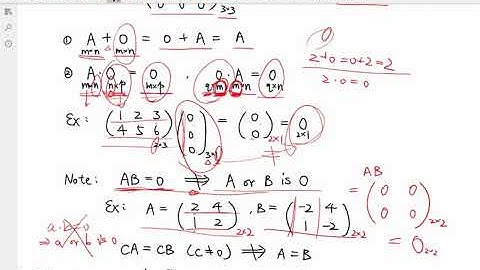 (0 0 0)3×3
0
① A m×n + O m×n = O + A = A
2+0=0+2=2
2·0=0
② A m×n · O n×p = O m×p , O q×m · A m×n = O q×n
Ex: (1 2 3
4 5 6)2×3 (0
0
0)3×1 = (0
0)2×1 = O 2×1
Note: AB=0 ⇏ A or B is 0
AB
= (0 0
0 0)2×2
= O2×2
Ex: A = (2 4
1 2)2×2 , B = (-2 4
1 -2)2×2
a·b=0
⇒ a or b is 0
CA = CB (C≠0) ⇏ A=B